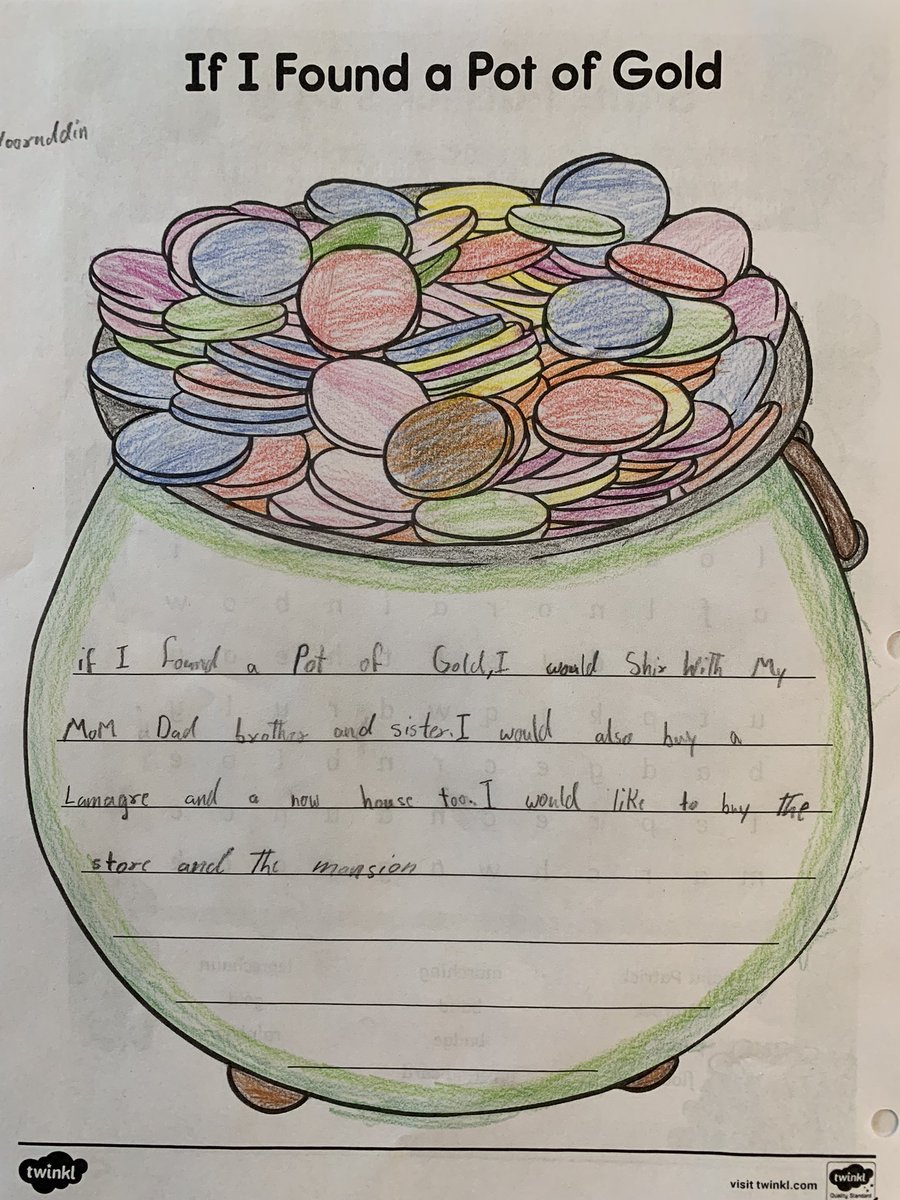 If I Found a Pot of Gold
if I Found a Pot of Gold, I would Shir With My
MoM Dad brother and sister. I would also buy a
Lamagre and a now house too. I would like to buy the
store and The mansion
twinkl
visit twinkl.com
twinkl
Quality Standard